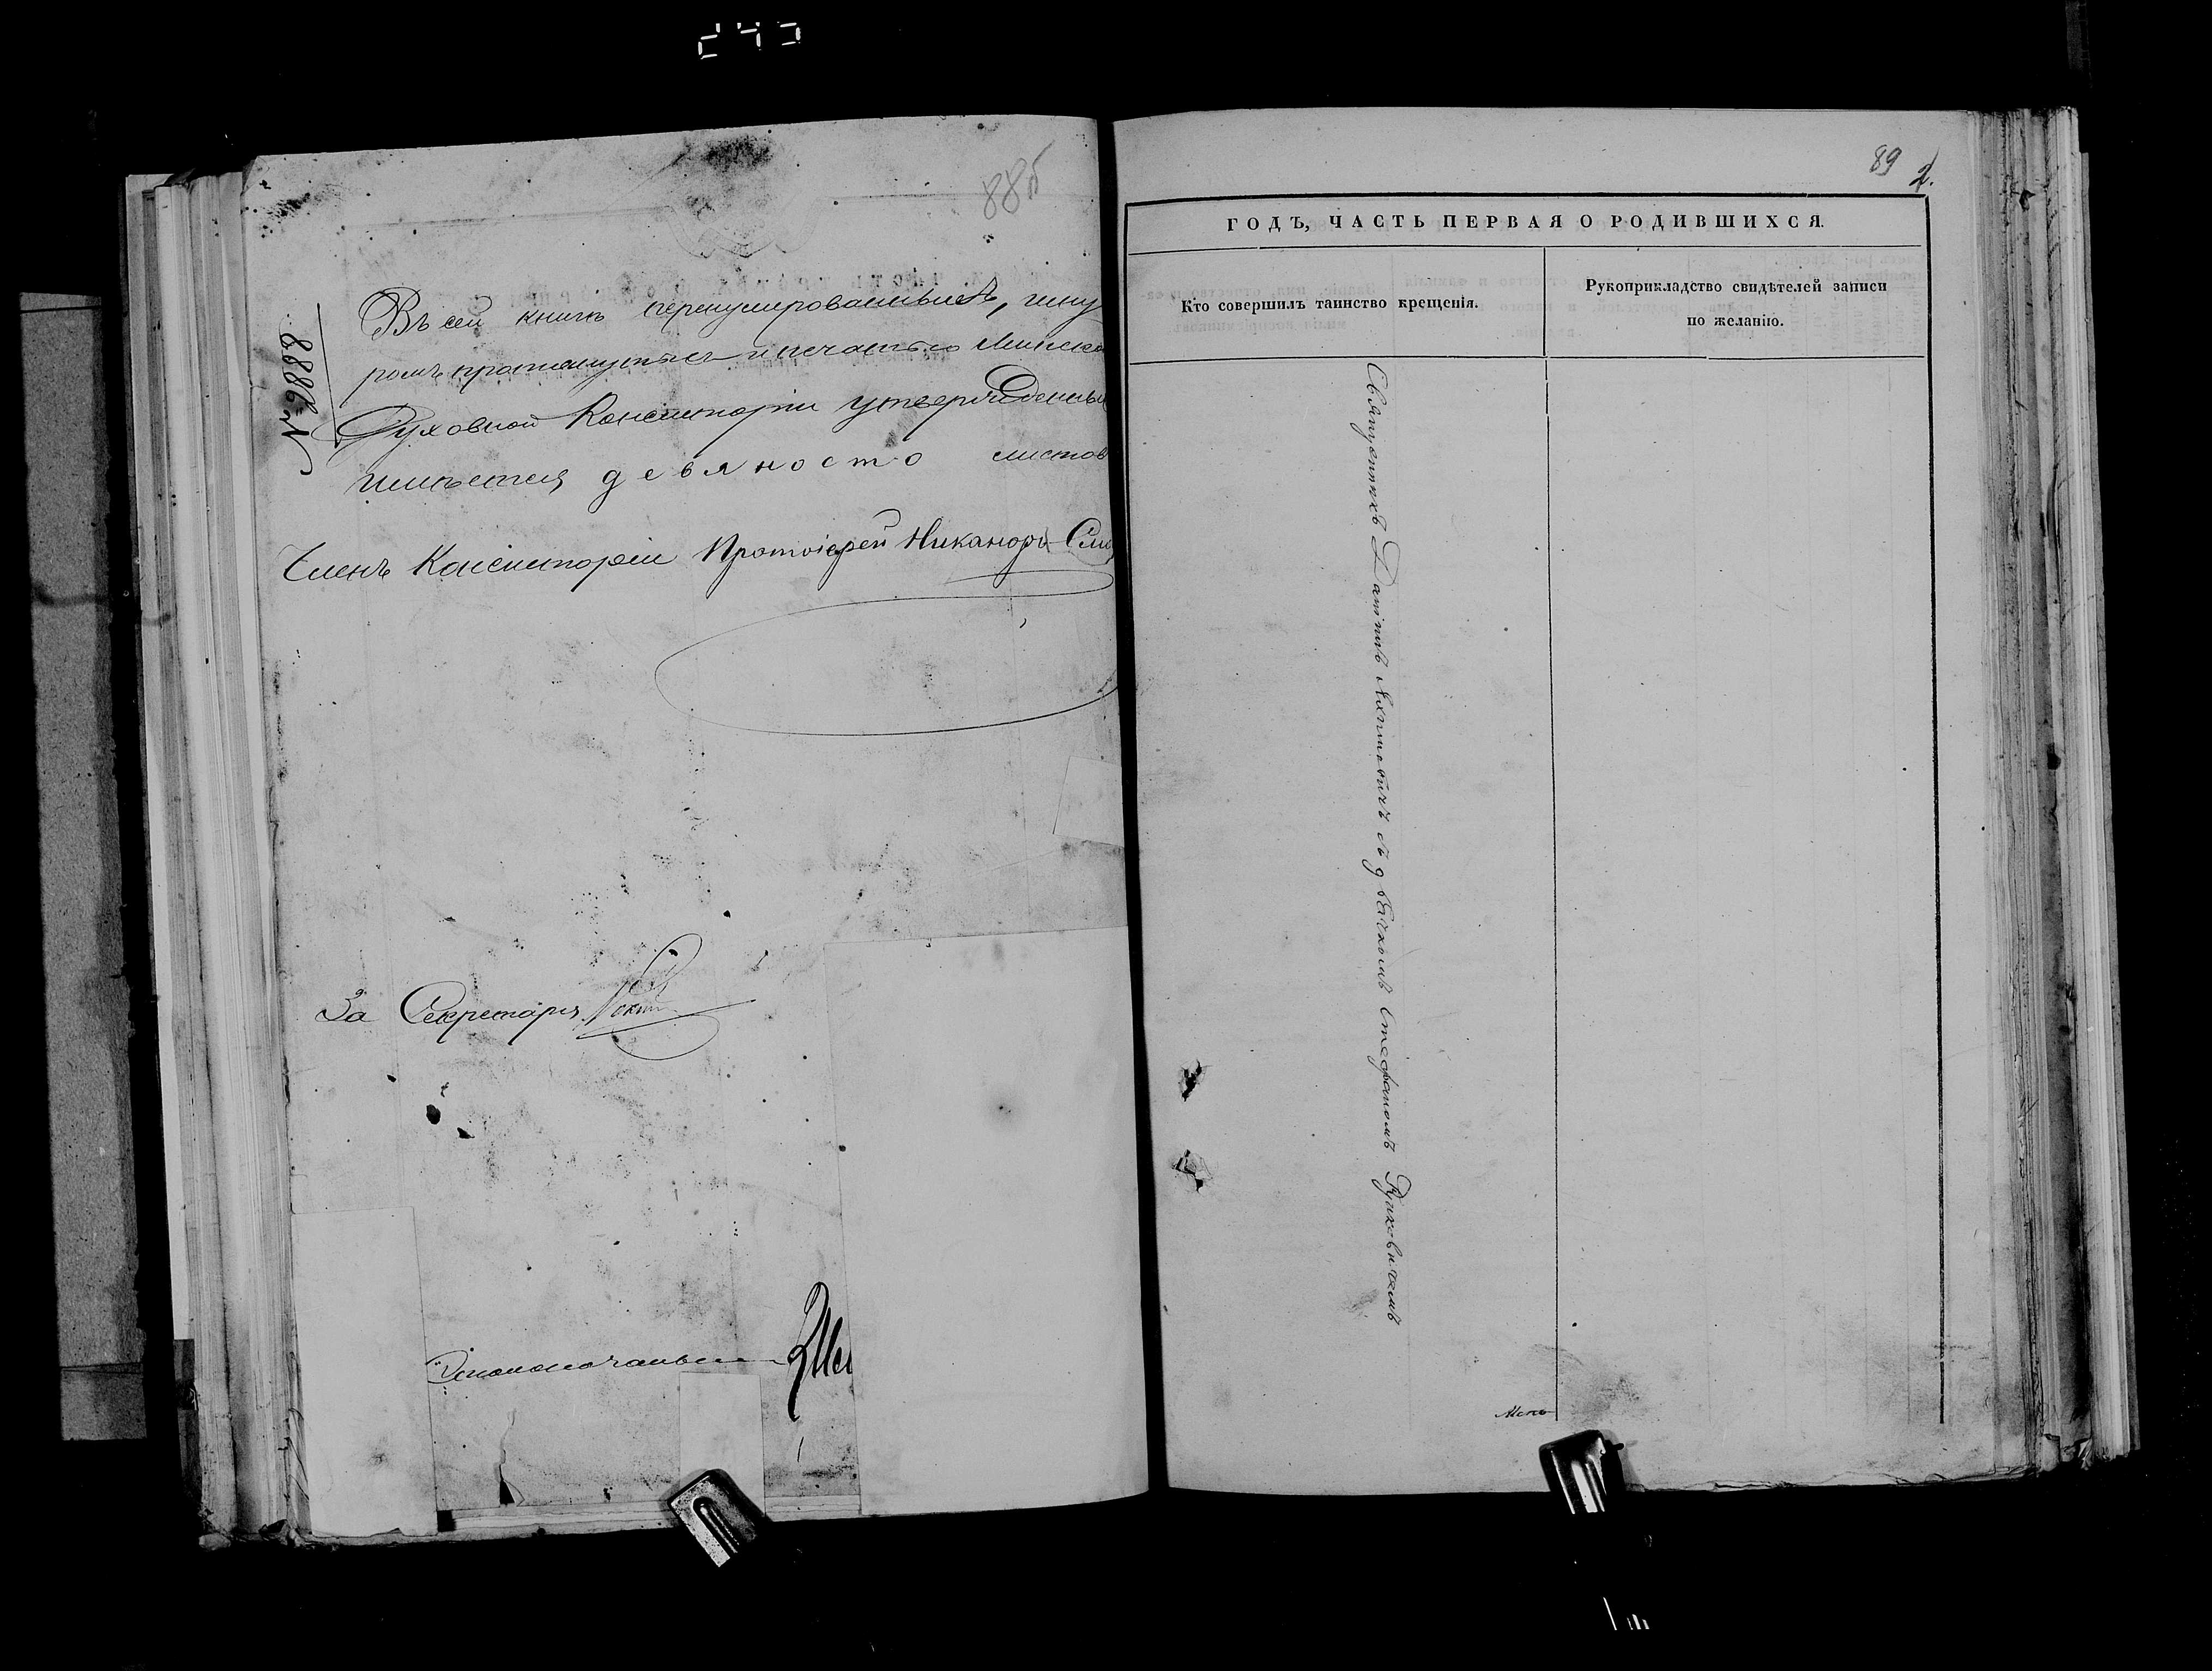 245
88б
№ 2888
Въ сей книгѣ перенумерованныхъ, шну
ромъ протянутыхъ и печатью Минско
Духовной Консисторіи утвержденны
имѣется девяносто листов
Членъ Консисторіи Протоіерей Никаноръ Смо
За Секретаря
Столоначальни
89 2.
ГОДЪ, ЧАСТЬ ПЕРВАЯ О РОДИВШИХСЯ.
Кто совершилъ таинство крещенія.
Рукоприкладство свидѣтелей записи
по желанію.
Священникъ Даніилъ съ дьячкомъ Стефаномъ